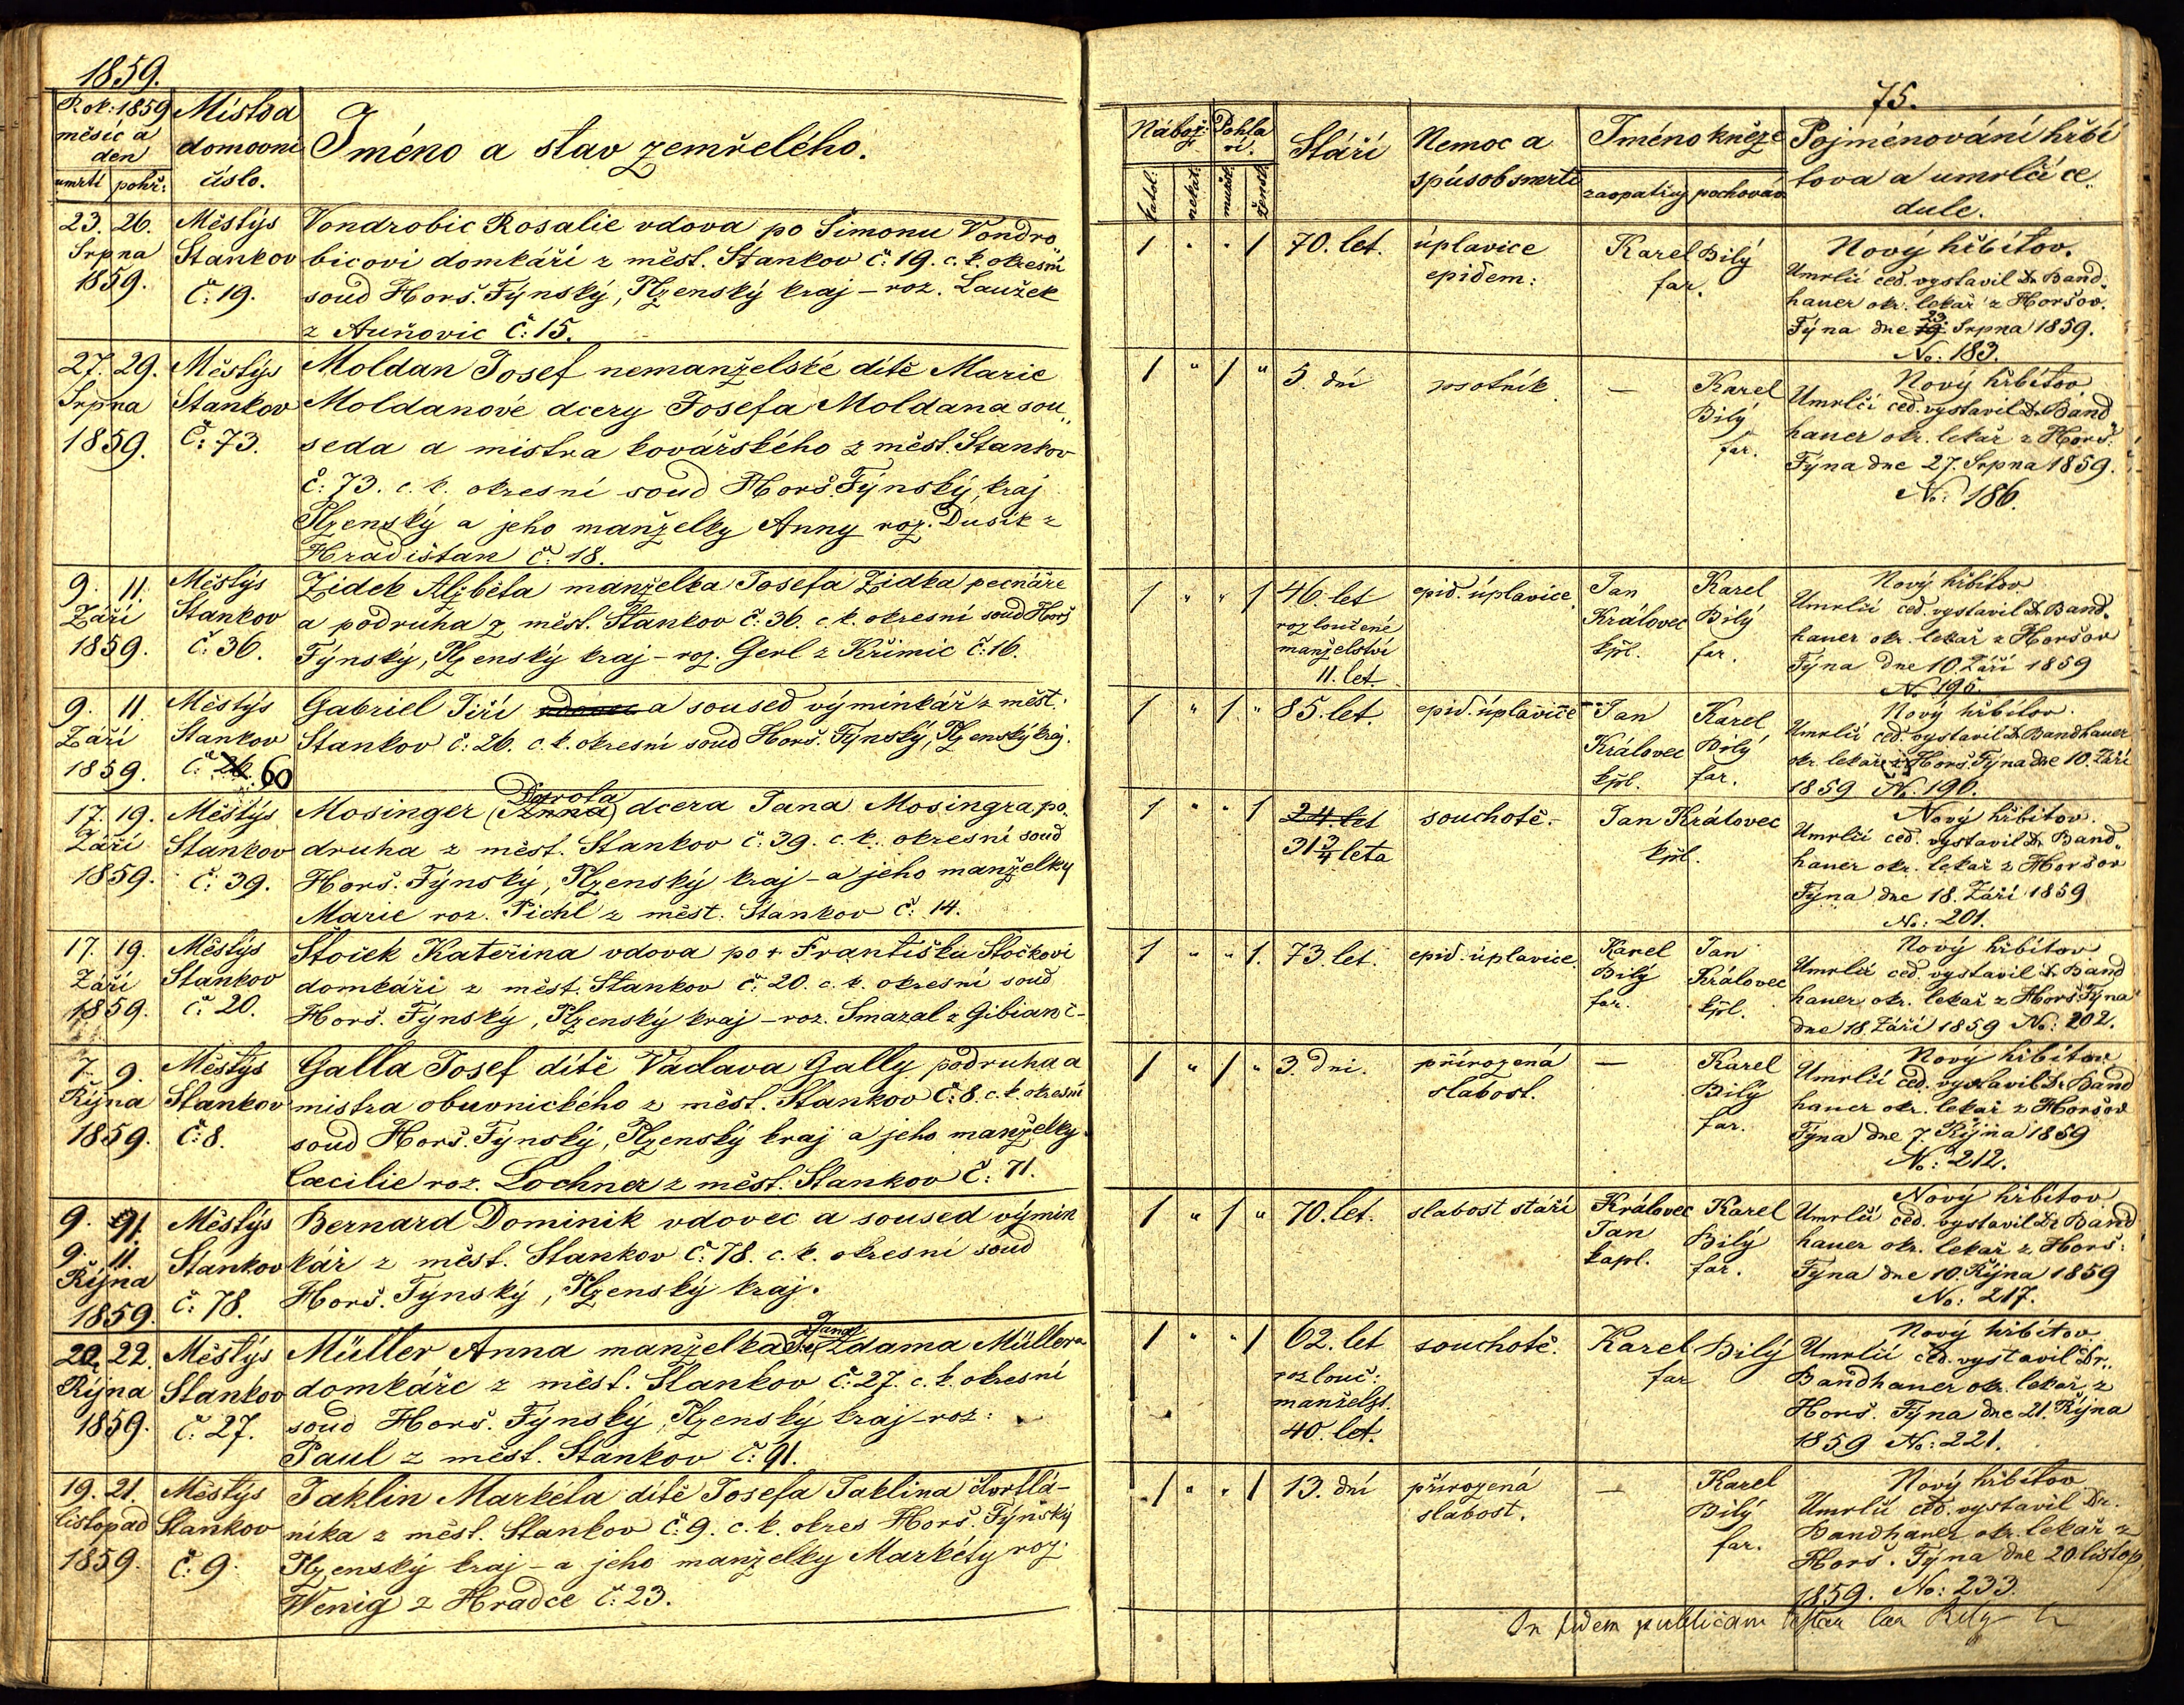 1859.
Rok: 1859
měsíc a
den
umrtí pohř:
Místo a
domovní
číslo.
Jméno a stav zemřelého.
23. 26.
Srpna
1859.
Městýs
Stankov
č: 19.
Vondrobic Rosalie vdova po Šimonu Vondro
bicovi domkáři z měst. Stankov č: 19. c. k. okresní
soud Horš. Týnský, Plzenský kraj – roz. Laužek
z Auňovic č: 15.
27. 29.
Srpna
1859.
Městýs
Stankov
č: 73.
Moldan Josef nemanželské dítě Marie
Moldanové dcery Josefa Moldana sou„
seda a mistra kovářského z měst. Stankov
č: 73. c. k. okresní soud Horš. Týnský, kraj
Plzenský a jeho manželky Anny roz. Dusik z
Hradištan č: 18.
9. 11.
Září
1859.
Městýs
Stankov
č: 36.
Zidek Alžběta manželka Josefa Zidka pecnáře
a podruha z měst. Stankov č: 36. c. k. okresní soud Horš
Týnský, Plzenský kraj – roz. Gerl z Křimic č: 16.
9. 11.
Září
1859.
Městýs
Stankov
č: 26. 60
Gabriel Jiří vdovec a soused výminkář z měst.
Stankov č: 26. c. k. okresní soud Horš. Týnský, Plzenský kraj.
17. 19.
Září
1859.
Městýs
Stankov
č: 39.
Dorota
Mosinger (Anna) dcera Jana Mosingra po„
druha z měst. Stankov č: 39. c. k. okresní soud
Horš. Týnský, Plzenský kraj – a jeho manželky
Marie roz. Pichl z měst. Stankov č: 14.
17. 19.
Září
1859.
Městýs
Stankov
č: 20.
Štoček Kateřina vdova po + Františku Stočkovi
domkáři z měst. Stankov č: 20. c. k. okresní soud
Horš. Týnský, Plzenský kraj – roz. Smazal z Gibian č –
7. 9.
Října
1859.
Městýs
Stankov
č: 8.
Galla Josef dítě Václava Gally podruha a
mistra obuvnického z měst. Stankov č: 8. c. k. okresní
soud Horš. Týnský, Plzenský kraj a jeho manželky
Cæcilie roz. Lochner z měst. Stankov č: 71.
9. 91.
9. 11.
Října
1859.
Městýs
Stankov
č: 78.
Bernard Dominik vdovec a soused výmin
kář z měst. Stankov č: 78. c. k. okresní soud
Horš. Týnský, Plzenský kraj.
20. 22.
Října
1859.
Městýs
Stankov
č: 27.
Jana
Müller Anna manželka Adama Müllera
domkáře z měst. Stankov č: 27. c. k. okresní
soud Horš. Týnský, Plzenský kraj – roz:
Paul z měst. Stankov č: 91.
19. 21.
listopad
1859.
Městýs
Stankov
č: 9.
Jaklin Markéta dítě Josefa Jaklina čtvrtlá–
níka z měst. Stankov č: 9. c. k. okres Horš. Týnský
Plzenský kraj – a jeho manželky Markéty roz:
Wenig z Hradce č: 23.
75.
Nábož: Pohla
ví.
katol: nekat. mužsk. žensk.
Stáří
Nemoc a
spůsob smrti
Jméno kněze
zaopatřuj pochovav
Pojménování hřbi
tova a umrlčí ce„
dule.
1 " " 1
70. let.
úplavice
epidem:
Karel Bilý
far.
Nový hřbitov.
Umrlčí ced. vystavil Dr Band„
hauer okr. lekař z Horšov.
23.
Týna dne 19. Srpna 1859.
No: 183.
1 " 1 "
5. dní
psotník
—
Karel
Bilý
far.
Nový hřbitov
Umrlčí ced. vystavil Dr Band„
hauer okr. lekař z Horš.
Týna dne 27. Srpna 1859.
No: 186.
1 " " 1
46. let
rozloučené
manželství
11. let.
epid. úplavice.
Jan
Královec
kpl.
Karel
Bilý
far.
Nový hřbitov
Umrlčí ced. vystavil Dr Band„
hauer okr. lekař z Horšov
Týna dne 10. Září 1859
No 195.
1 " 1 "
85. let.
epid. úplavice
Jan
Královec
kpl.
Karel
Bilý
far.
Nový hřbitov.
Umrlčí ced. vystavil Dr Bandhauer
okr. lekař z Horš. Týna dne 10. Září
1859 No: 196.
1 " " 1
24 let
31 3/4 leta
souchotě.
Jan Královec
kpl.
Nový hřbitov.
Umrlčí ced. vystavil Dr Band„
hauer okr. lekař z Horšov
Týna dne 18. Září 1859
No: 201.
1 " " 1.
73. let.
epid. úplavice.
Karel
Bilý
far.
Jan
Královec
kpl.
Nový hřbitov
Umrlčí ced. vystavil Dr Band
hauer okr. lekař z Horš Týna
dne 18. Září 1859 No: 202.
1 " 1 "
3. dni.
přirozená
slabost.
—
Karel
Bilý
far.
Nový hřbitov
Umrlčí ced. vystavil Dr Band
hauer okr. lekař z Horšov
Týna dne 7. Října 1859
No: 212.
1 " 1 "
70. let.
slabost stáří
Královec
Jan
kapl.
Karel
Bilý
far.
Nový hřbitov
Umrlčí ced. vystavil Dr Band
hauer okr. lekař z Horš:
Týna dne 10. Října 1859
No: 217.
1 " " 1
62. let
rozlouč:
manžels.
40. let.
souchotě.
Karel Bilý
far
Nový hřbitov
Umrlčí ced. vystavil Dr.
Bandhauer okr. lekař z
Horš. Týna dne 21. Října
1859 No: 221.
1 " " 1
13. dní
přirozená
slabost.
—
Karel
Bilý
far.
Nový hřbitov
Umrlčí ced. vystavil Dr.
Bandhauer okr. lekař z
Horš. Týna dne 20. listop.
1859. No: 233.
In fidem publicam